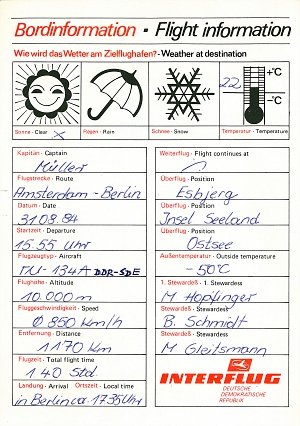 Bordinformation · Flight information
Wie wird das Wetter am Zielflughafen? · Weather at destination
22
+°C
-°C
Sonne · Clear x
Regen · Rain
Schnee · Snow
Temperatur · Temperature
Kapitän · Captain
Müller
Flugstrecke · Route
Amsterdam - Berlin
Datum · Date
31.08.84
Startzeit · Departure
15.55 Uhr
Flugzeugtyp · Aircraft
TU-134A DDR-SDE
Flughöhe · Altitude
10.000 m
Fluggeschwindigkeit · Speed
Ø 850 km/h
Entfernung · Distance
1170 km
Flugzeit · Total flight time
1.40 Std
Landung · Arrival Ortszeit · Local time
in Berlin ca. 17.35 Uhr
Weiterflug · Flight continues at
Überflug · Position
Esbjerg
Überflug · Position
Insel Seeland
Überflug · Position
Ostsee
Außentemperatur · Outside temperature
-50°C
1. Stewardeß · 1. Stewardess
M Hopfinger
Stewardeß · Stewardess
B. Schmidt
Stewardeß · Stewardess
M Gleitsmann
INTERFLUG
DEUTSCHE
DEMOKRATISCHE
REPUBLIK